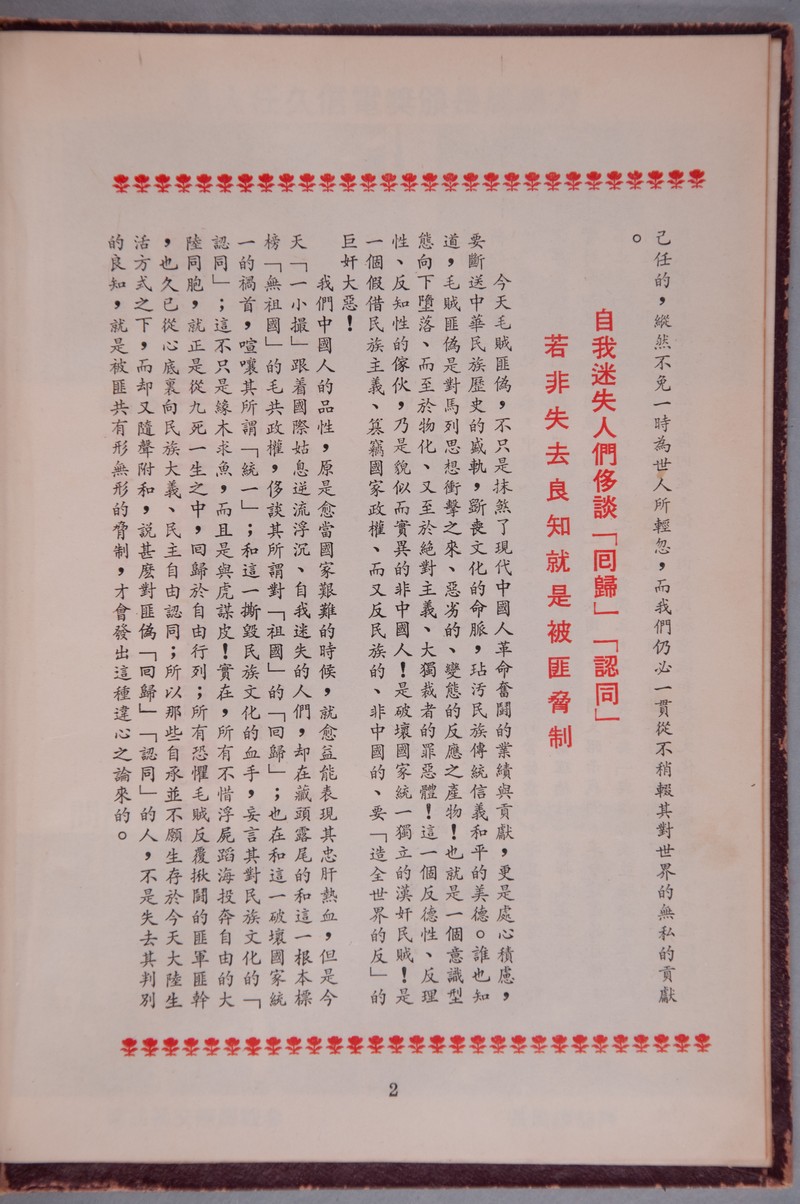 己任的，縱然不免一時為世人所輕忽，而我們仍必一貫從不稍輟其對世界的無私的貢獻
。
自我迷失人們侈談「囘歸」「認同」
若非失去良知就是被匪脅制
今天毛賊匪偽，不只是抹煞了現代中國人革命奮鬪的業績與貢獻，更是處心積慮，
要斷送中華民族歷史的盛軌，斲喪文化的命脈，玷污民族傳統信義和平的美德。誰也知
道，毛賊匪偽是對馬列思想衝擊之來、惡劣的、變態的反應之產物！也就是一個意識型
態向下墮落、而至於物化、又至於絶對主義、大獨裁者的罪惡體！這一個反德性、反理
性、反知性的傢伙，乃是貌似而實異的非中國人！是破壞國家統一獨立的漢奸民賊！是
一個假借民族主義、篡竊國家政權、而又反民族的、非中國的、要「造全世界的反」的
巨奸大惡！
我們中國人的品性，原是愈當國家艱難的時候，就愈益能表現其忠肝熱血，但是今
天「一小撮」跟着國際姑息逆流浮沉、自我迷失的人們，却在藏頭露尾的和這一根本標
榜「無祖國」的毛共政權，侈談其所謂對「祖國」的「囘歸」；也在和這一破壞國家統
一的禍首，喧嚷其所謂「統一」；和這一撕毀民族文化的血手，妄言其對民族文化的「
認同」；這不只是緣木求魚，而且是與虎謀皮！實在，所有不惜浮屍蹈海投奔自由的大
陸同胞，就正是從九死一生之中，囘歸於自由行列；所有恐懼毛賊反覆揪鬪的匪軍匪幹
，也久已從心底裏向民族大義、民主自由認同；所以那些自承並不願生存於今天大陸生
活方式之下，而却又隨聲附和，說甚麼對匪偽「囘歸」「認同」的人，不是失去其判別
的良知，就是被匪共有形無形的脅制，才會發出這種違心之論來的。
2